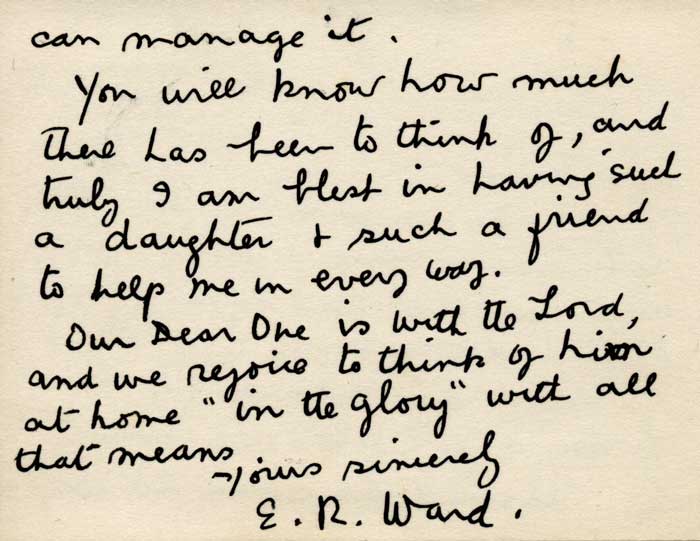 can manage it.
You will know how much
there has been to think of, and
truly I am blest in having such
a daughter & such a friend
to help me in every way.
Our Dear One is with the Lord,
and we rejoice to think of him
at home "in the glory" with all
that means
Yours sincerely
E. R. Ward.